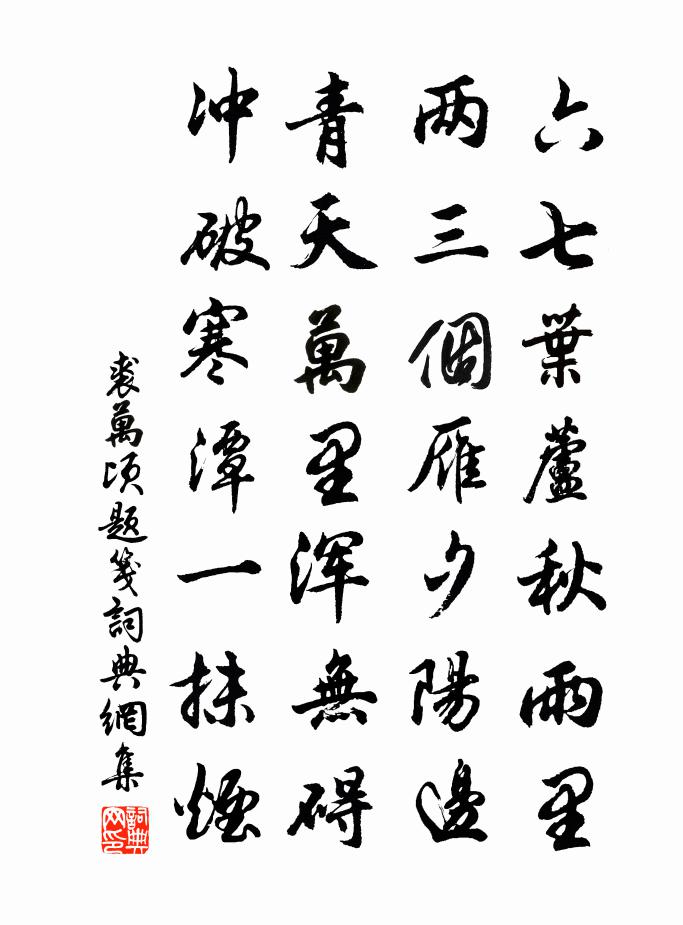 六七葉蘆秋雨里
两三個雁夕陽邊
青天萬里浑無碍
冲破寒潭一抹煙
裘萬頃題箋詞典網集
詞典网印